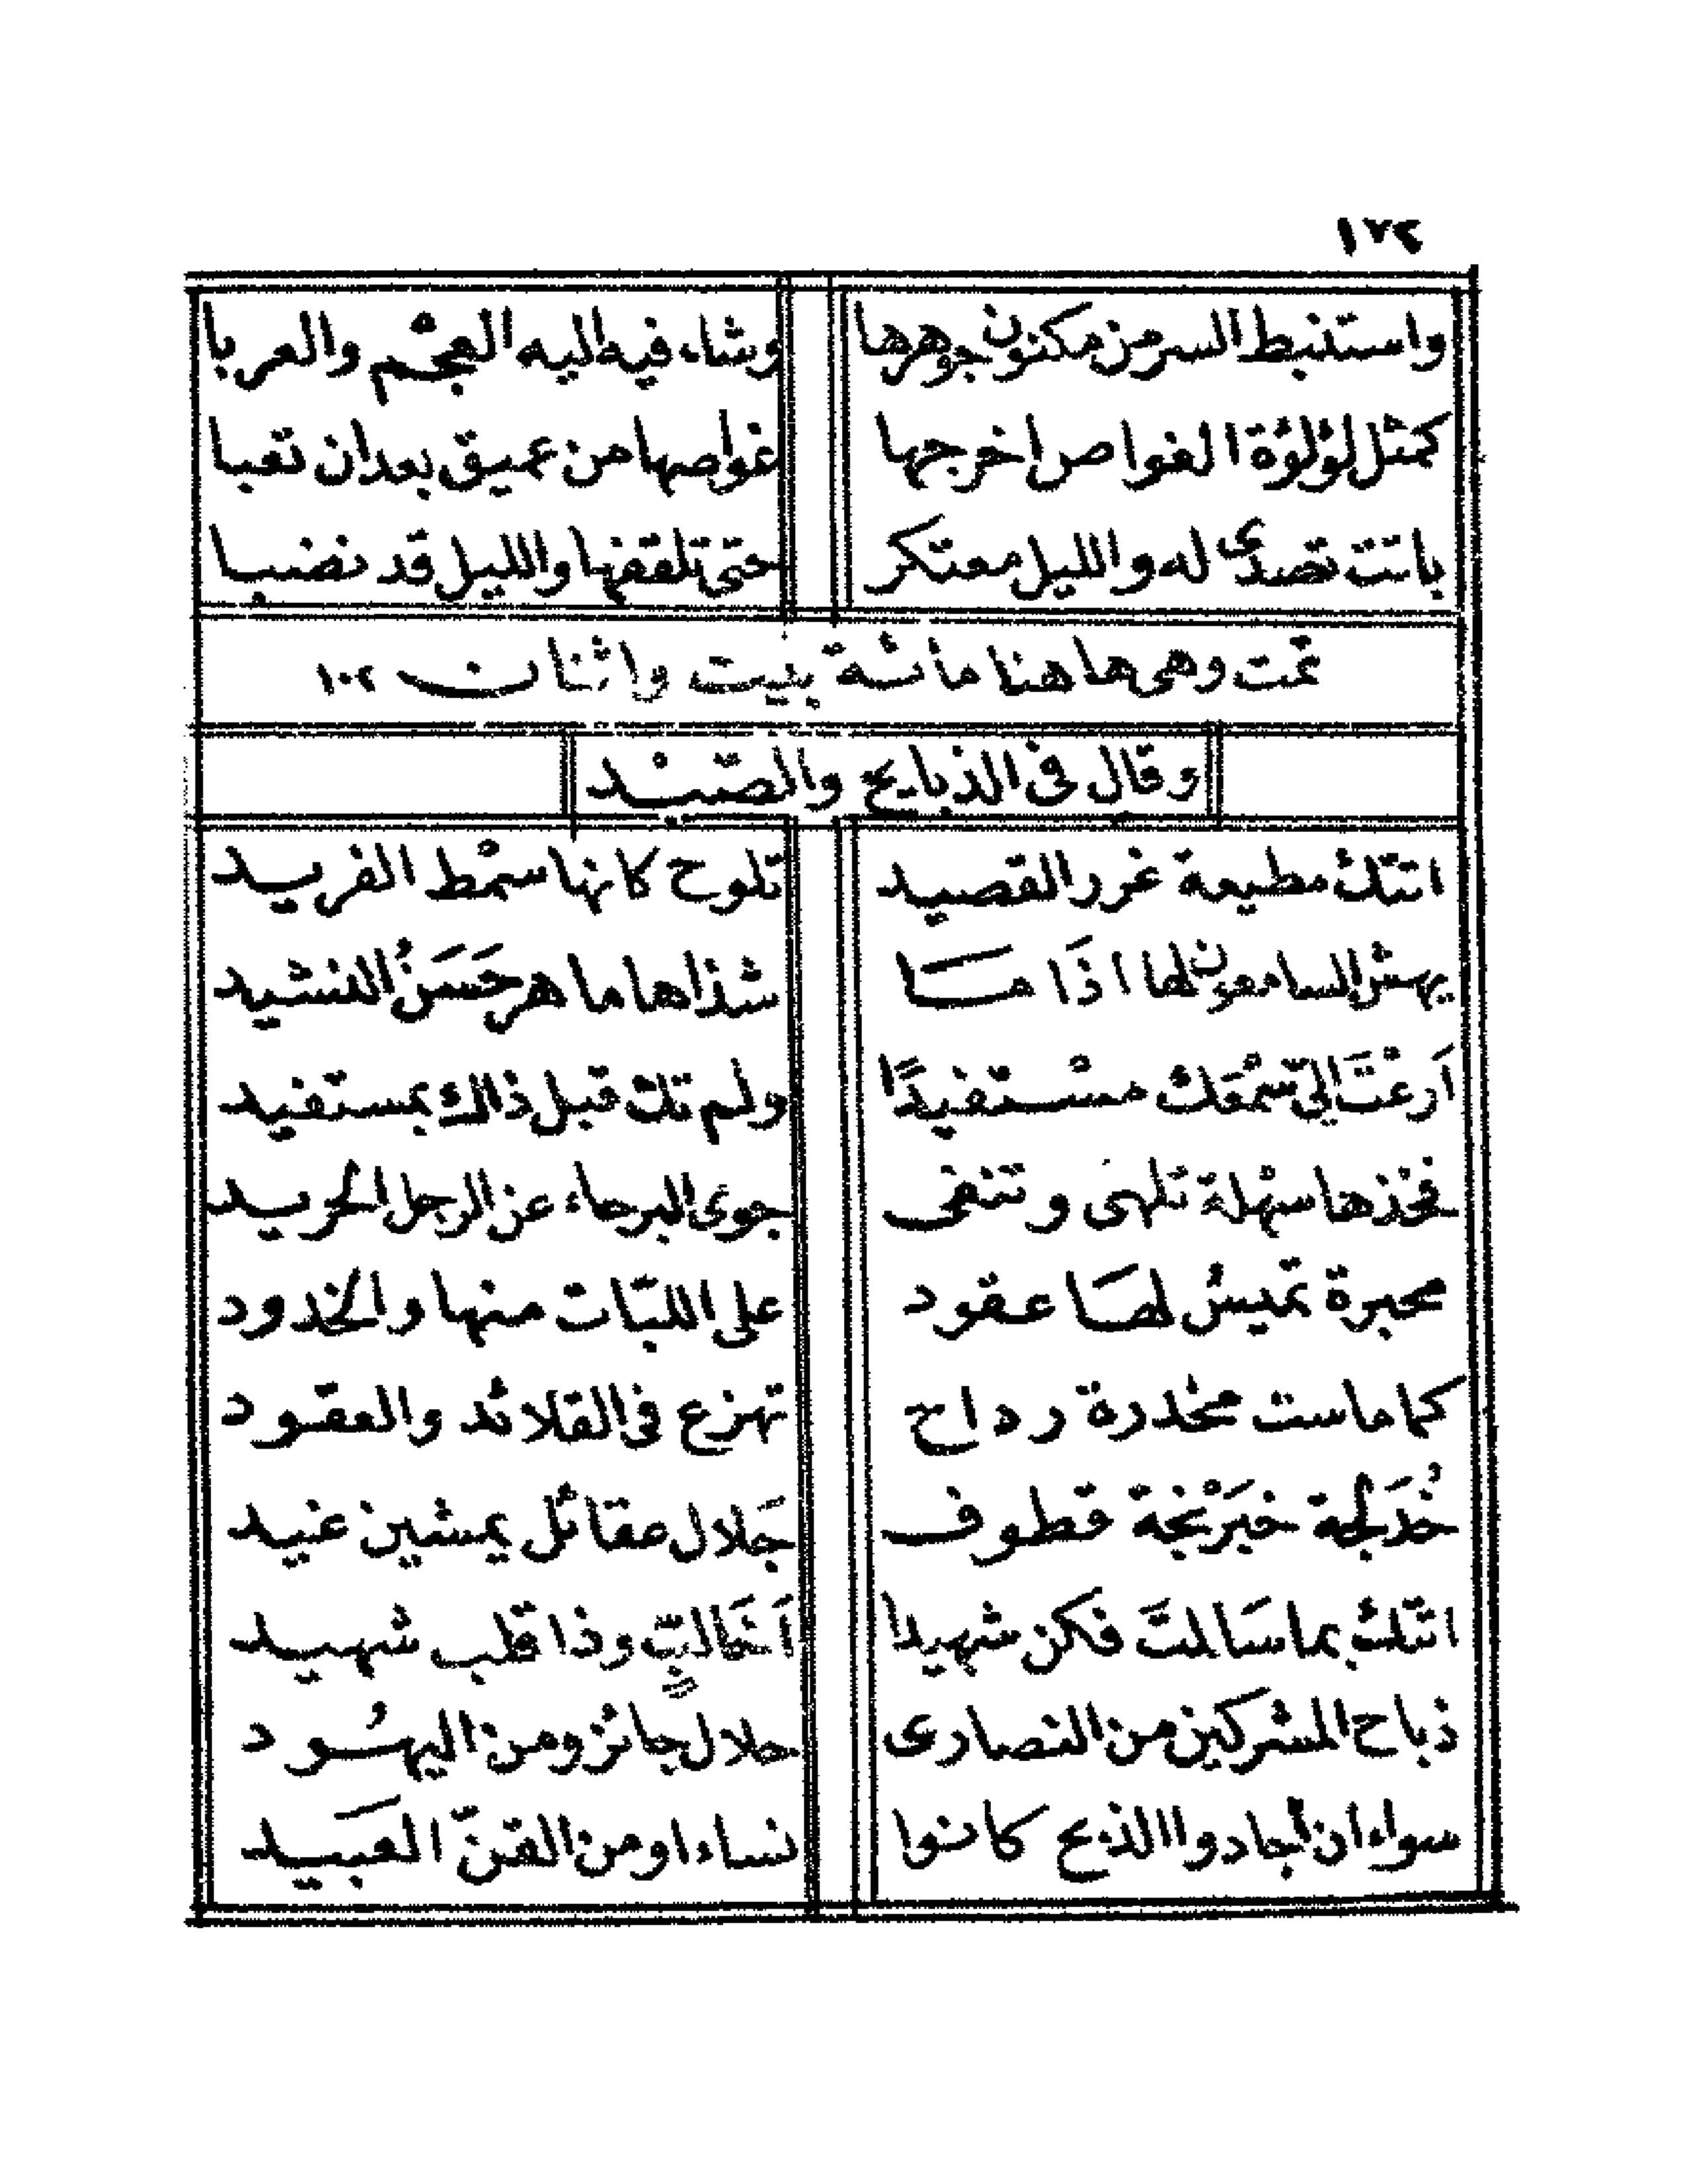 ١٧٢
واستنبط السر من مكنون جوهرها وشاء فيه اليه العجم والعربا
كمثل لؤلؤة الغواص اخرجها غواصها من عميق بعد ان تعبا
باتت تصدى له والليل معتكر حتى تلقفها والليل قد نضبا
تمت وهى ها هنا مائة بيت واثنان ١٠٢
وقال فى الذبايح والصّيْد
اتتك مطيعة غرر القصيد تلوح كانها سمْط الفريد
يهش السامعون لها اذَا مَا شذاها ماهر حَسَنُ النشيد
اَرعْتَ اليّ سمْعَك مسْتفيدًا ولم تك قبل ذاك بمستفيد
فخذها سهْلة تلهى وتنفى جوى البرحاء عن الرجل الحريد
محبرة تميسُ لهَا عقود على اللبّات منها والخدود
كما ماست مخدرة رداح تهزع فى القلائد والعقود
خُدَلجة خبَرْنجة قطوف جَلال عقائل يمشين غيد
اتتك بما سَالمتَ فكن شهيدا اَخَالبٍّ وذا قلب شهيد
ذباح المشركين من النصارى حلال جائز ومن اليهُود
سواء ان اجادوا الذبح كانوا نساء او من القنّ العَبيد